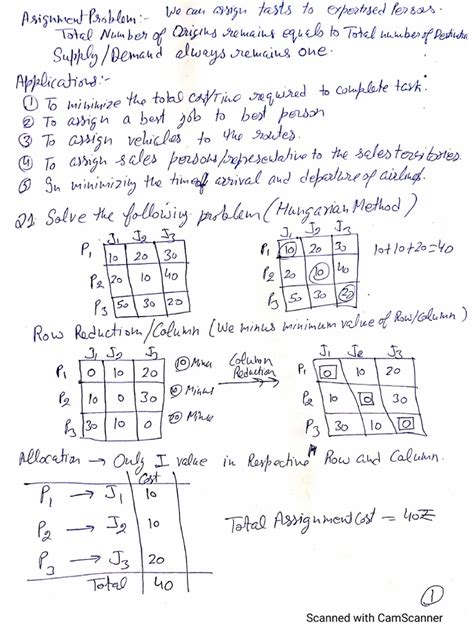 Asignment Problem:- We can assign tasks to expertised Persons.
Total Number of Origins remains equals to Total number of Destination
Supply/Demand always remains one.
Applications:-
① To minimize the total cost/Time required to complete task.
② To assign a best job to best person
③ To assign vehicles to the routes.
④ To assign sales persons/representative to the sales territories.
⑤ In minimizing the time of arrival and departure of airlines.
Q1 Solve the following problem (Hungarian Method)
J1 J2 J3
P1 10 20 30
P2 20 10 40
P3 50 30 20
J1 J2 J3
P1 10 20 30 10+10+20=40
P2 20 10 40
P3 50 30 20
Row Reduction/Column (We minus minimum value of Row/Column)
J1 J2 J3
P1 0 10 20 10 Minus
P2 10 0 30 10 Minus
P3 30 10 0 20 Minus
Column Reduction
J1 J2 J3
P1 0 10 20
P2 10 0 30
P3 30 10 0
Allocation → Only 1 value in Respective Row and Column.
Cost
P1 → J1 10
P2 → J2 10
P3 → J3 20
Total 40
Total Assignment Cost = 40
①
Scanned with CamScanner